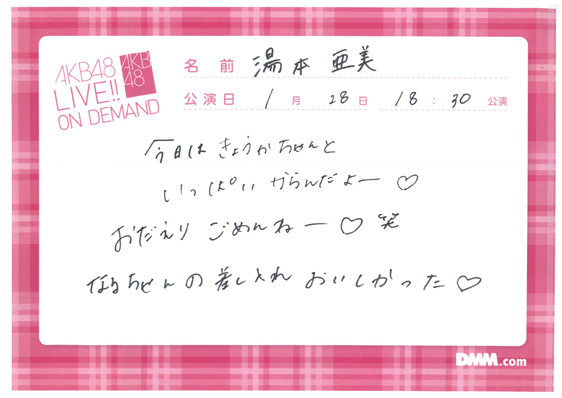 AKB48
LIVE!!
ON DEMAND
AKB
48
名前 湯本 亜美
公演日 1月 28日 18:30 公演
今日は きょうかちゃんと
いっぱい からんだよー ♡
おだえり ごめんねー ♡ 笑
なるちゃんの 差し入れ おいしかった ♡
DMM.com